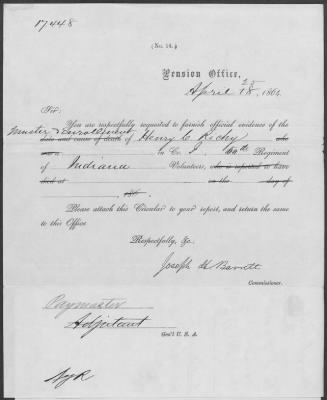 17448
(No. 14.)
Pension Office,
April 25 18, 186
Sir:
You are respectfully requested to furnish official evidence of the
Muster & Enrollment
date and cause of death of Henry C. Richy who
was a in Co. I, Regiment
of Indiana Volunteers, who is reported to have
died at on the day of
186 .
Please attach this Circular to your report, and return the same
to this Office
Respectfully, &c.
Joseph H Barrett
Commissioner.
Paymaster
Adjutant
Gen'l U. S. A.